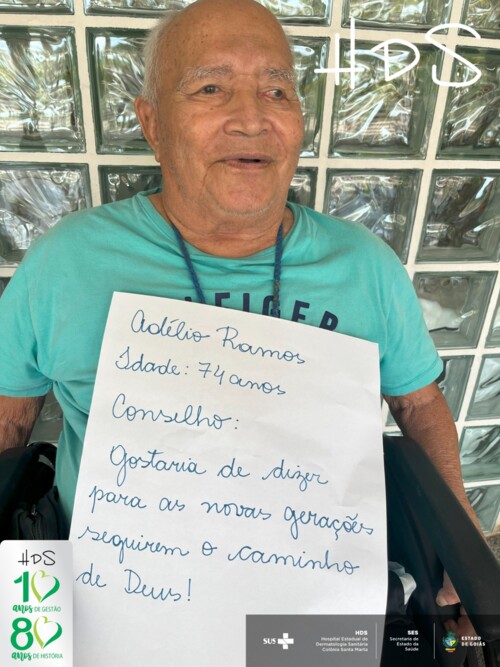 HDS
EIGER
Adélio Ramos
Idade: 74 anos
Conselho:
Gostaria de dizer
para as novas gerações
seguirem o caminho
de Deus!
HDS
10
anos DE GESTÃO
80
anos DE HISTÓRIA
SUS
HDS
Hospital Estadual de
Dermatologia Sanitária
Colônia Santa Marta
SES
Secretaria de
Estado da
Saúde
ESTADO
DE GOIÁS